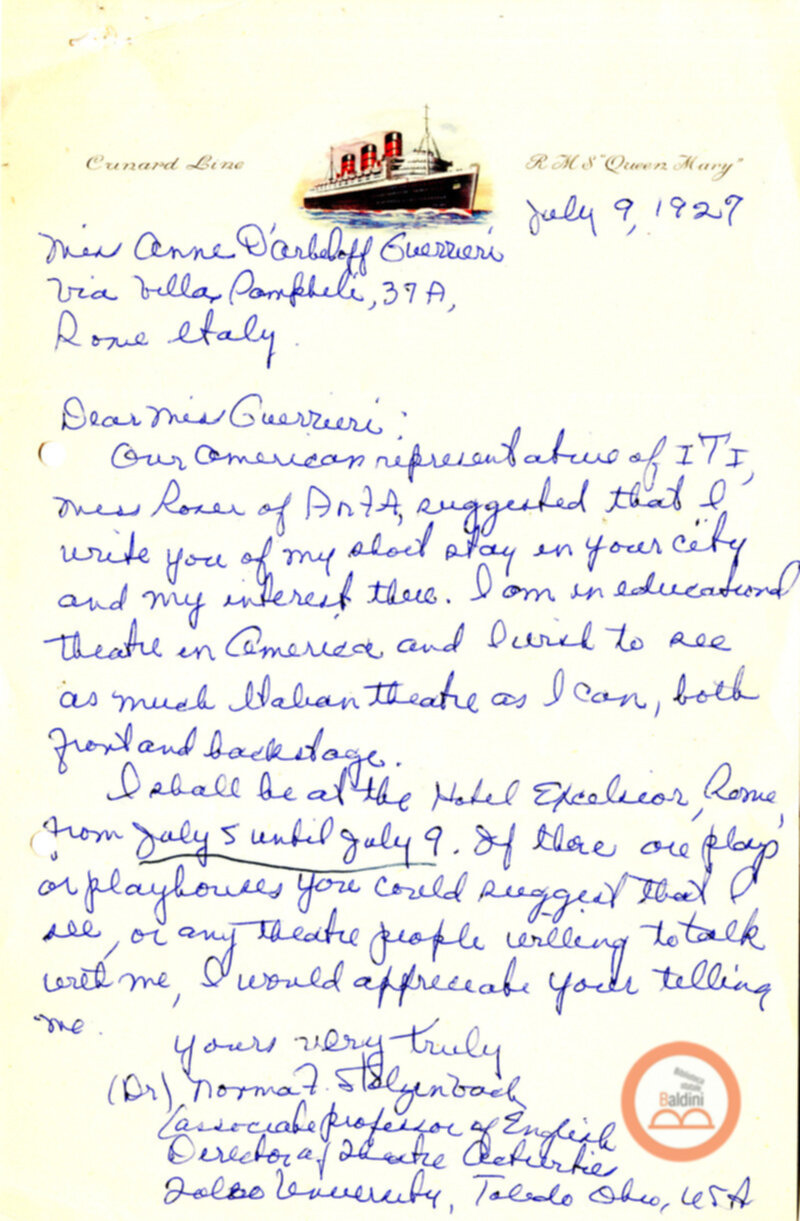 Cunard Line
R M S "Queen Mary"
July 9, 1927
Miss Anne D'Arbeloff Guerrieri
Via Villa Pamphili, 37A,
Rome Italy.
Dear Miss Guerrieri:
Our American representative of ITI,
Miss Rosen of AnTA, suggested that I
write you of my short stay in your city
and my interest there. I am in educational
theatre in America and I wish to see
as much Italian theatre as I can, both
front and backstage.
I shall be at the Hotel Excelsior, Rome,
from July 5 until July 9. If there are plays
or playhouses you could suggest that I
see, or any theatre people willing to talk
with me, I would appreciate your telling
me.
Yours very truly
(Dr) Norma F. Stolzenbach
Associate professor of English
Director of Theatre Activities
Toledo University, Toledo Ohio, USA
Biblioteca
statale
Baldini